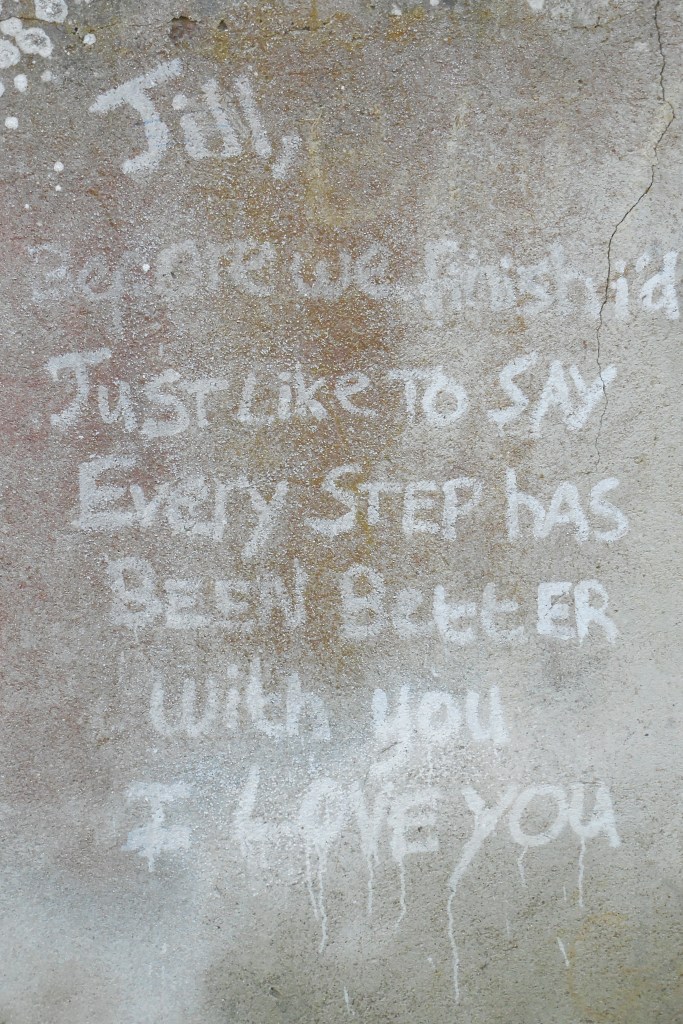 Jill,
Before we finish i'd
Just Like To SAY
Every STEP hAS
BEEN BettER
with you
I LOVE YOU